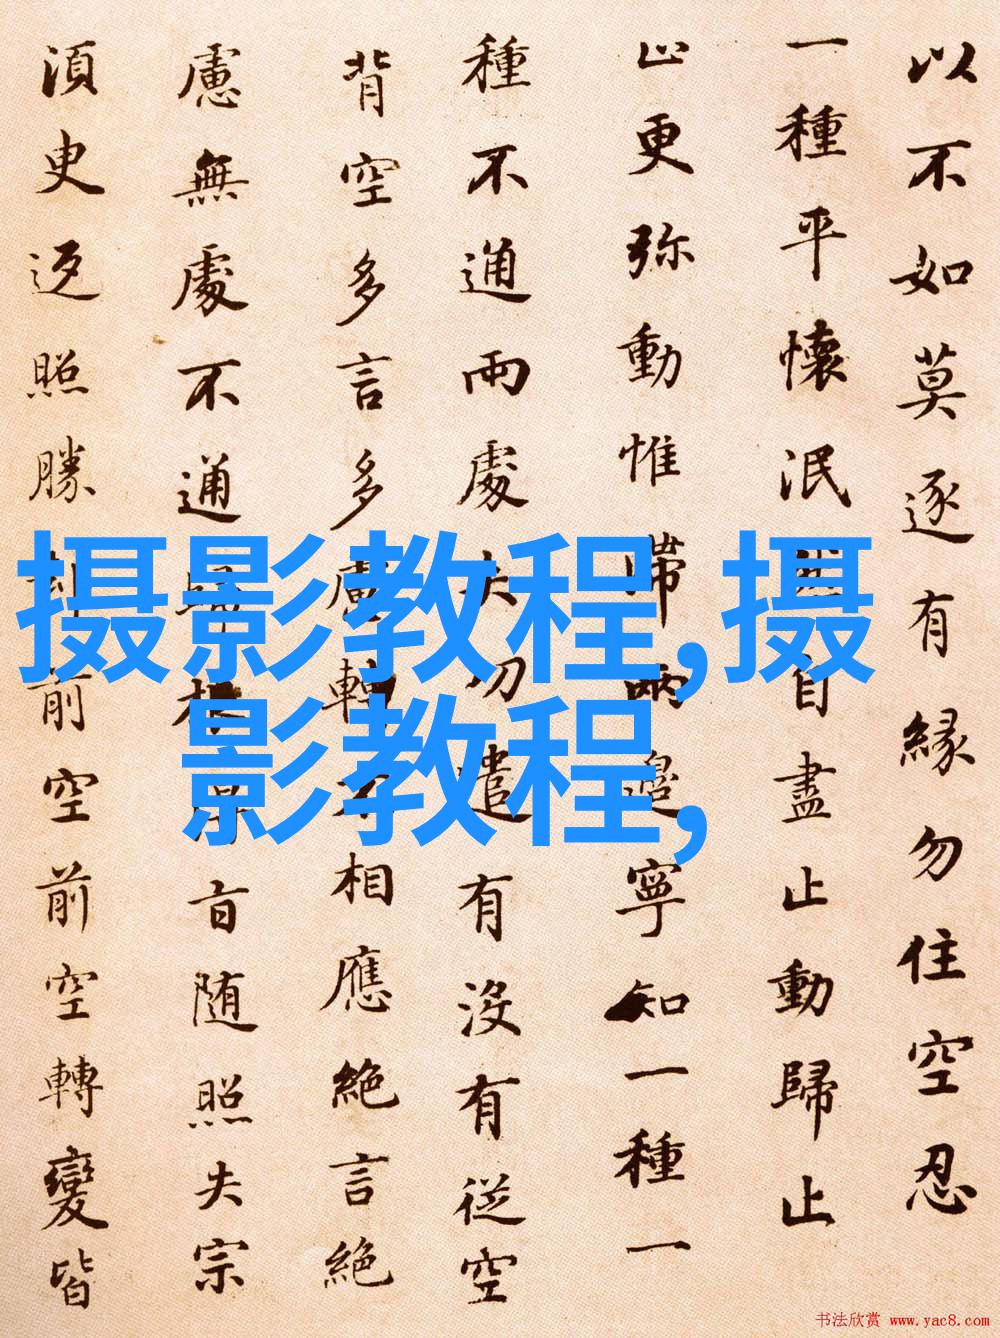 以不如莫逐有緣勿住空忍
一種平懷泯然自盡止動歸止
止更弥動惟滯兩邊寧知一種一
種不通兩處失功遣有沒有從空
背空多言多慮轉不相應絕言絕
慮無處不通歸根得旨随照失宗
須臾返照勝却前空前空轉變皆
摄影教程,摄
影教程,
书法欣赏 www.yac8.com